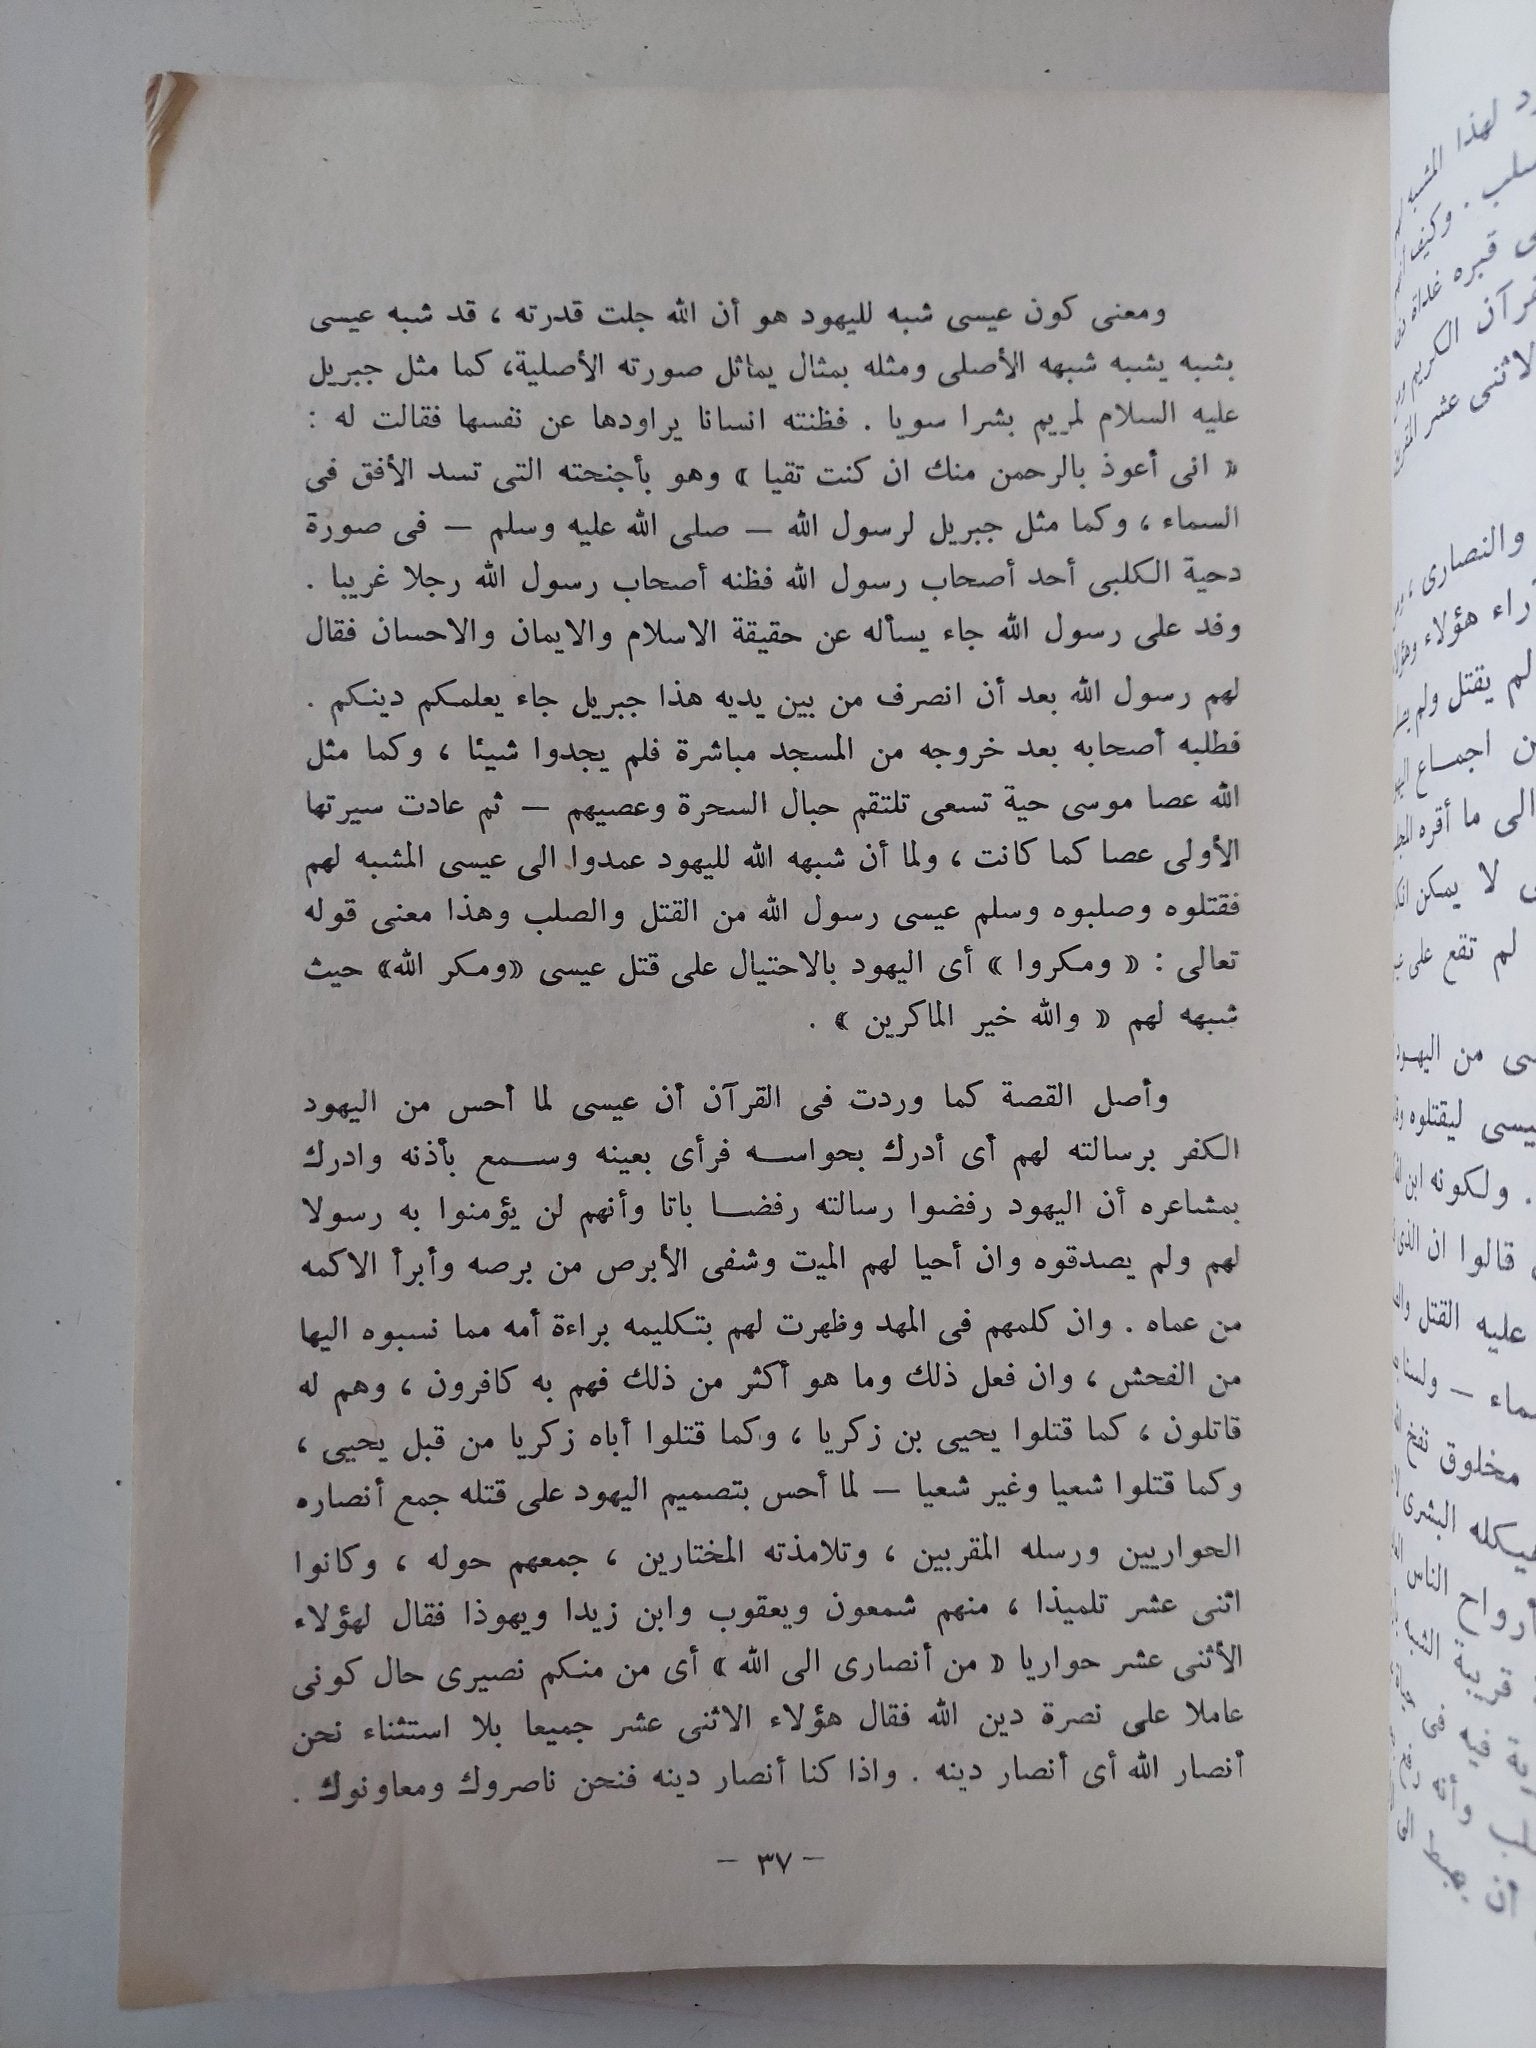 ومعنى كون عيسى شبه لليهود هو أن الله جلت قدرته ، قد شبه عيسى
بشبه يشبه شبهه الأصلى ومثله بمثال يماثل صورته الأصلية، كما مثل جبريل
عليه السلام لمريم بشرا سويا . فظنته انسانا يراودها عن نفسها فقالت له :
« انى أعوذ بالرحمن منك ان كنت تقيا » وهو بأجنحته التى تسد الأفق فى
السماء ، وكما مثل جبريل لرسول الله — صلى الله عليه وسلم — فى صورة
دحية الكلبى أحد أصحاب رسول الله فظنه أصحاب رسول الله رجلا غريبا .
وفد على رسول الله جاء يسأله عن حقيقة الاسلام والايمان والاحسان فقال
لهم رسول الله بعد أن انصرف من بين يديه هذا جبريل جاء يعلمكم دينكم .
فطلبه أصحابه بعد خروجه من المسجد مباشرة فلم يجدوا شيئا ، وكما مثل
الله عصا موسى حية تسعى تلتقم حبال السحرة وعصيهم — ثم عادت سيرتها
الأولى عصا كما كانت ، ولما أن شبهه الله لليهود عمدوا الى عيسى المشبه لهم
فقتلوه وصلبوه وسلم عيسى رسول الله من القتل والصلب وهذا معنى قوله
تعالى : « ومكروا » أى اليهود بالاحتيال على قتل عيسى «ومكر الله» حيث
شبهه لهم « والله خير الماكرين » .
وأصل القصة كما وردت فى القرآن أن عيسى لما أحس من اليهود
الكفر برسالته لهم أى أدرك بحواسه فرأى بعينه وسمع بأذنه وادرك
بمشاعره أن اليهود رفضوا رسالته رفضا باتا وأنهم لن يؤمنوا به رسولا
لهم ولم يصدقوه وان أحيا لهم الميت وشفى الأبرص من برصه وأبرأ الاكمه
من عماه . وان كلمهم فى المهد وظهرت لهم بتكليمه براءة أمه مما نسبوه اليها
من الفحش ، وان فعل ذلك وما هو أكثر من ذلك فهم به كافرون ، وهم له
قاتلون ، كما قتلوا يحيى بن زكريا ، وكما قتلوا أباه زكريا من قبل يحيى ،
وكما قتلوا شعيا وغير شعيا — لما أحس بتصميم اليهود على قتله جمع أنصاره
الحواريين ورسله المقربين ، وتلامذته المختارين ، جمعهم حوله ، وكانوا
اثنى عشر تلميذا ، منهم شمعون ويعقوب وابن زيدا ويهوذا فقال لهؤلاء
الأثنى عشر حواريا « من أنصارى الى الله » أى من منكم نصيرى حال كونى
عاملا على نصرة دين الله فقال هؤلاء الاثنى عشر جميعا بلا استثناء نحن
أنصار الله أى أنصار دينه . واذا كنا أنصار دينه فنحن ناصروك ومعاونوك .
— ٣٧ —